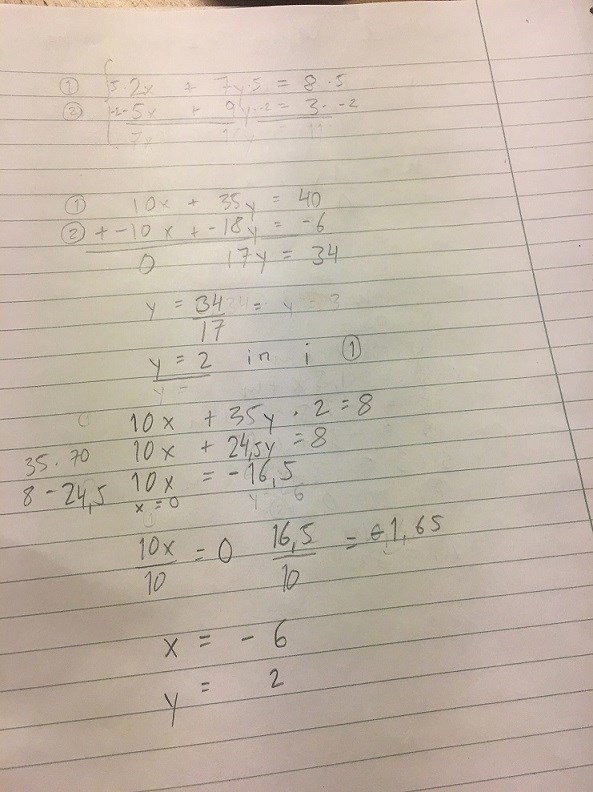 ① 5·2x + 7y·5 = 8·5
② -2·5x + 9y·-2 = 3·-2
① 10x + 35y = 40
② + -10x + -18y = -6
0 17y = 34
y = 34/17
y = 2 in i ①
10x + 35y · 2 = 8
35·70 10x + 24,5y = 8
8 - 24,5 10x = -16,5
x = 0
10x/10 = 0 16,5/10 = -1,65
x = - 6
y = 2